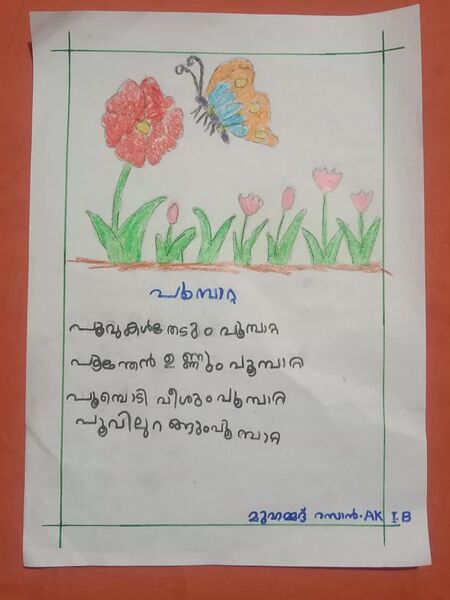 പൂമ്പാറ്റ
പൂവുകൾതേടും പൂമ്പാറ്റ
പൂന്തേൻ ഉണ്ണും പൂമ്പാറ്റ
പൂമ്പൊടി വീശും പൂമ്പാറ്റ
പൂവിലുറങ്ങും പൂമ്പാറ്റ
മുഹമ്മദ് റസാൻ.AK I.B